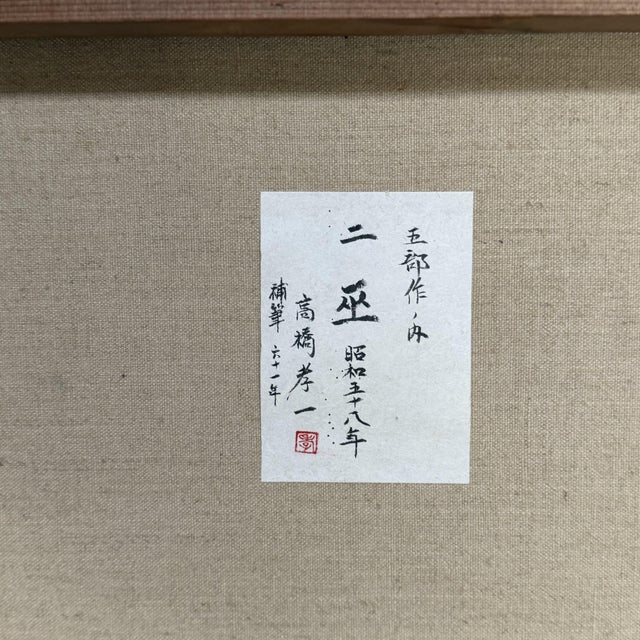 五部作ノ内
二 巫 昭和五十八年
高橋孝一
補筆 六十一年
孝